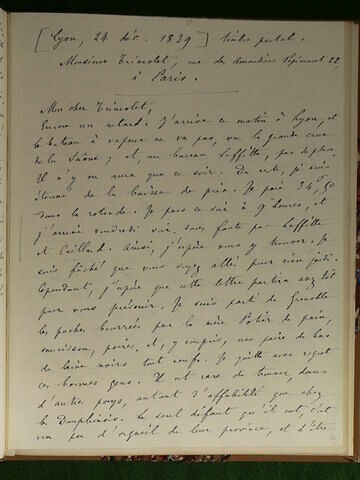 [Lyon, 24 déc. 1839] timbre postal.
Monsieur Trimolet, rue des Amandiers Popincourt 22,
à Paris.
Mon cher Trimolet,
Encore un retard. J'arrive ce matin à Lyon, et
le bateau à vapeur ne va pas, vu la grande crue
de la Saône; et, au bureau Laffitte, pas de place.
Il n'y en aura que ce soir. Du reste, je suis
étonné de la baisse de prix. Je paie 34 f 50
dans la rotonde. Je pars ce soir à 9 heures, et
j'arrive vendredi soir, sans faute par Laffitte
et Caillard. Ainsi, j'espère vous y trouver. Je
suis fâché que vous soyez allé pour rien jeudi.
Cependant, j'espère que cette lettre partira assez tôt
pour vous prévenir. Je suis parti de Grenoble
les poches bourrées par la mère Potié de pain,
saucisson, poires, et, y compris, une paire de bas
de laine noirs tout neufs. Je quitte avec regret
ces bonnes gens. Il est rare de trouver, dans
d'autres pays, autant d'affabilité que chez
les Dauphinois. Le seul défaut qu'ils ont, c'est
un peu d'orgueil de leur province, et d'être